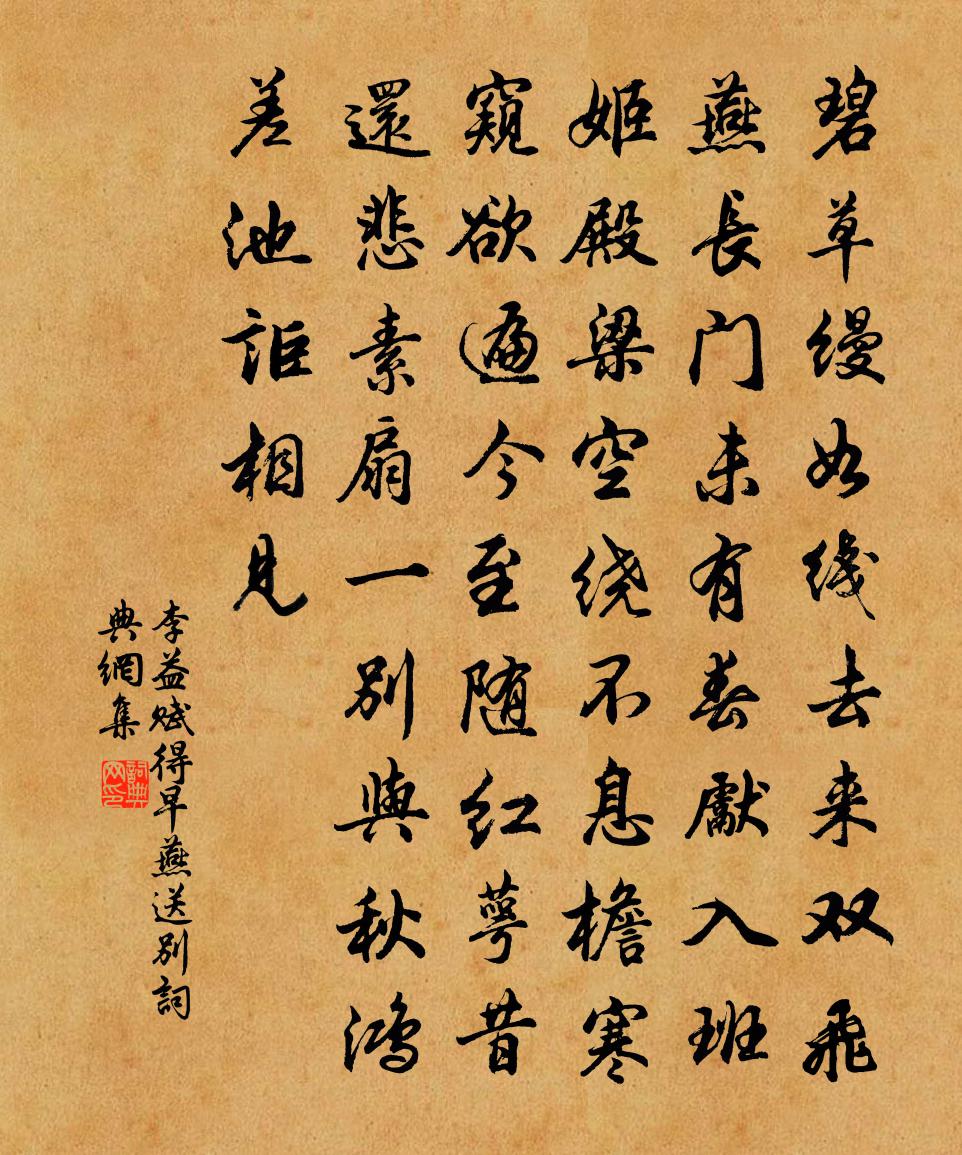 碧草缦如线去来双飞
燕長门未有春獻入班
姬殿梁空绕不息檐寒
窺欲遍今至随红萼昔
還悲素扇一别與秋鸿
差池詎相見
李益赋得早燕送别詞
典網集
詞典网印